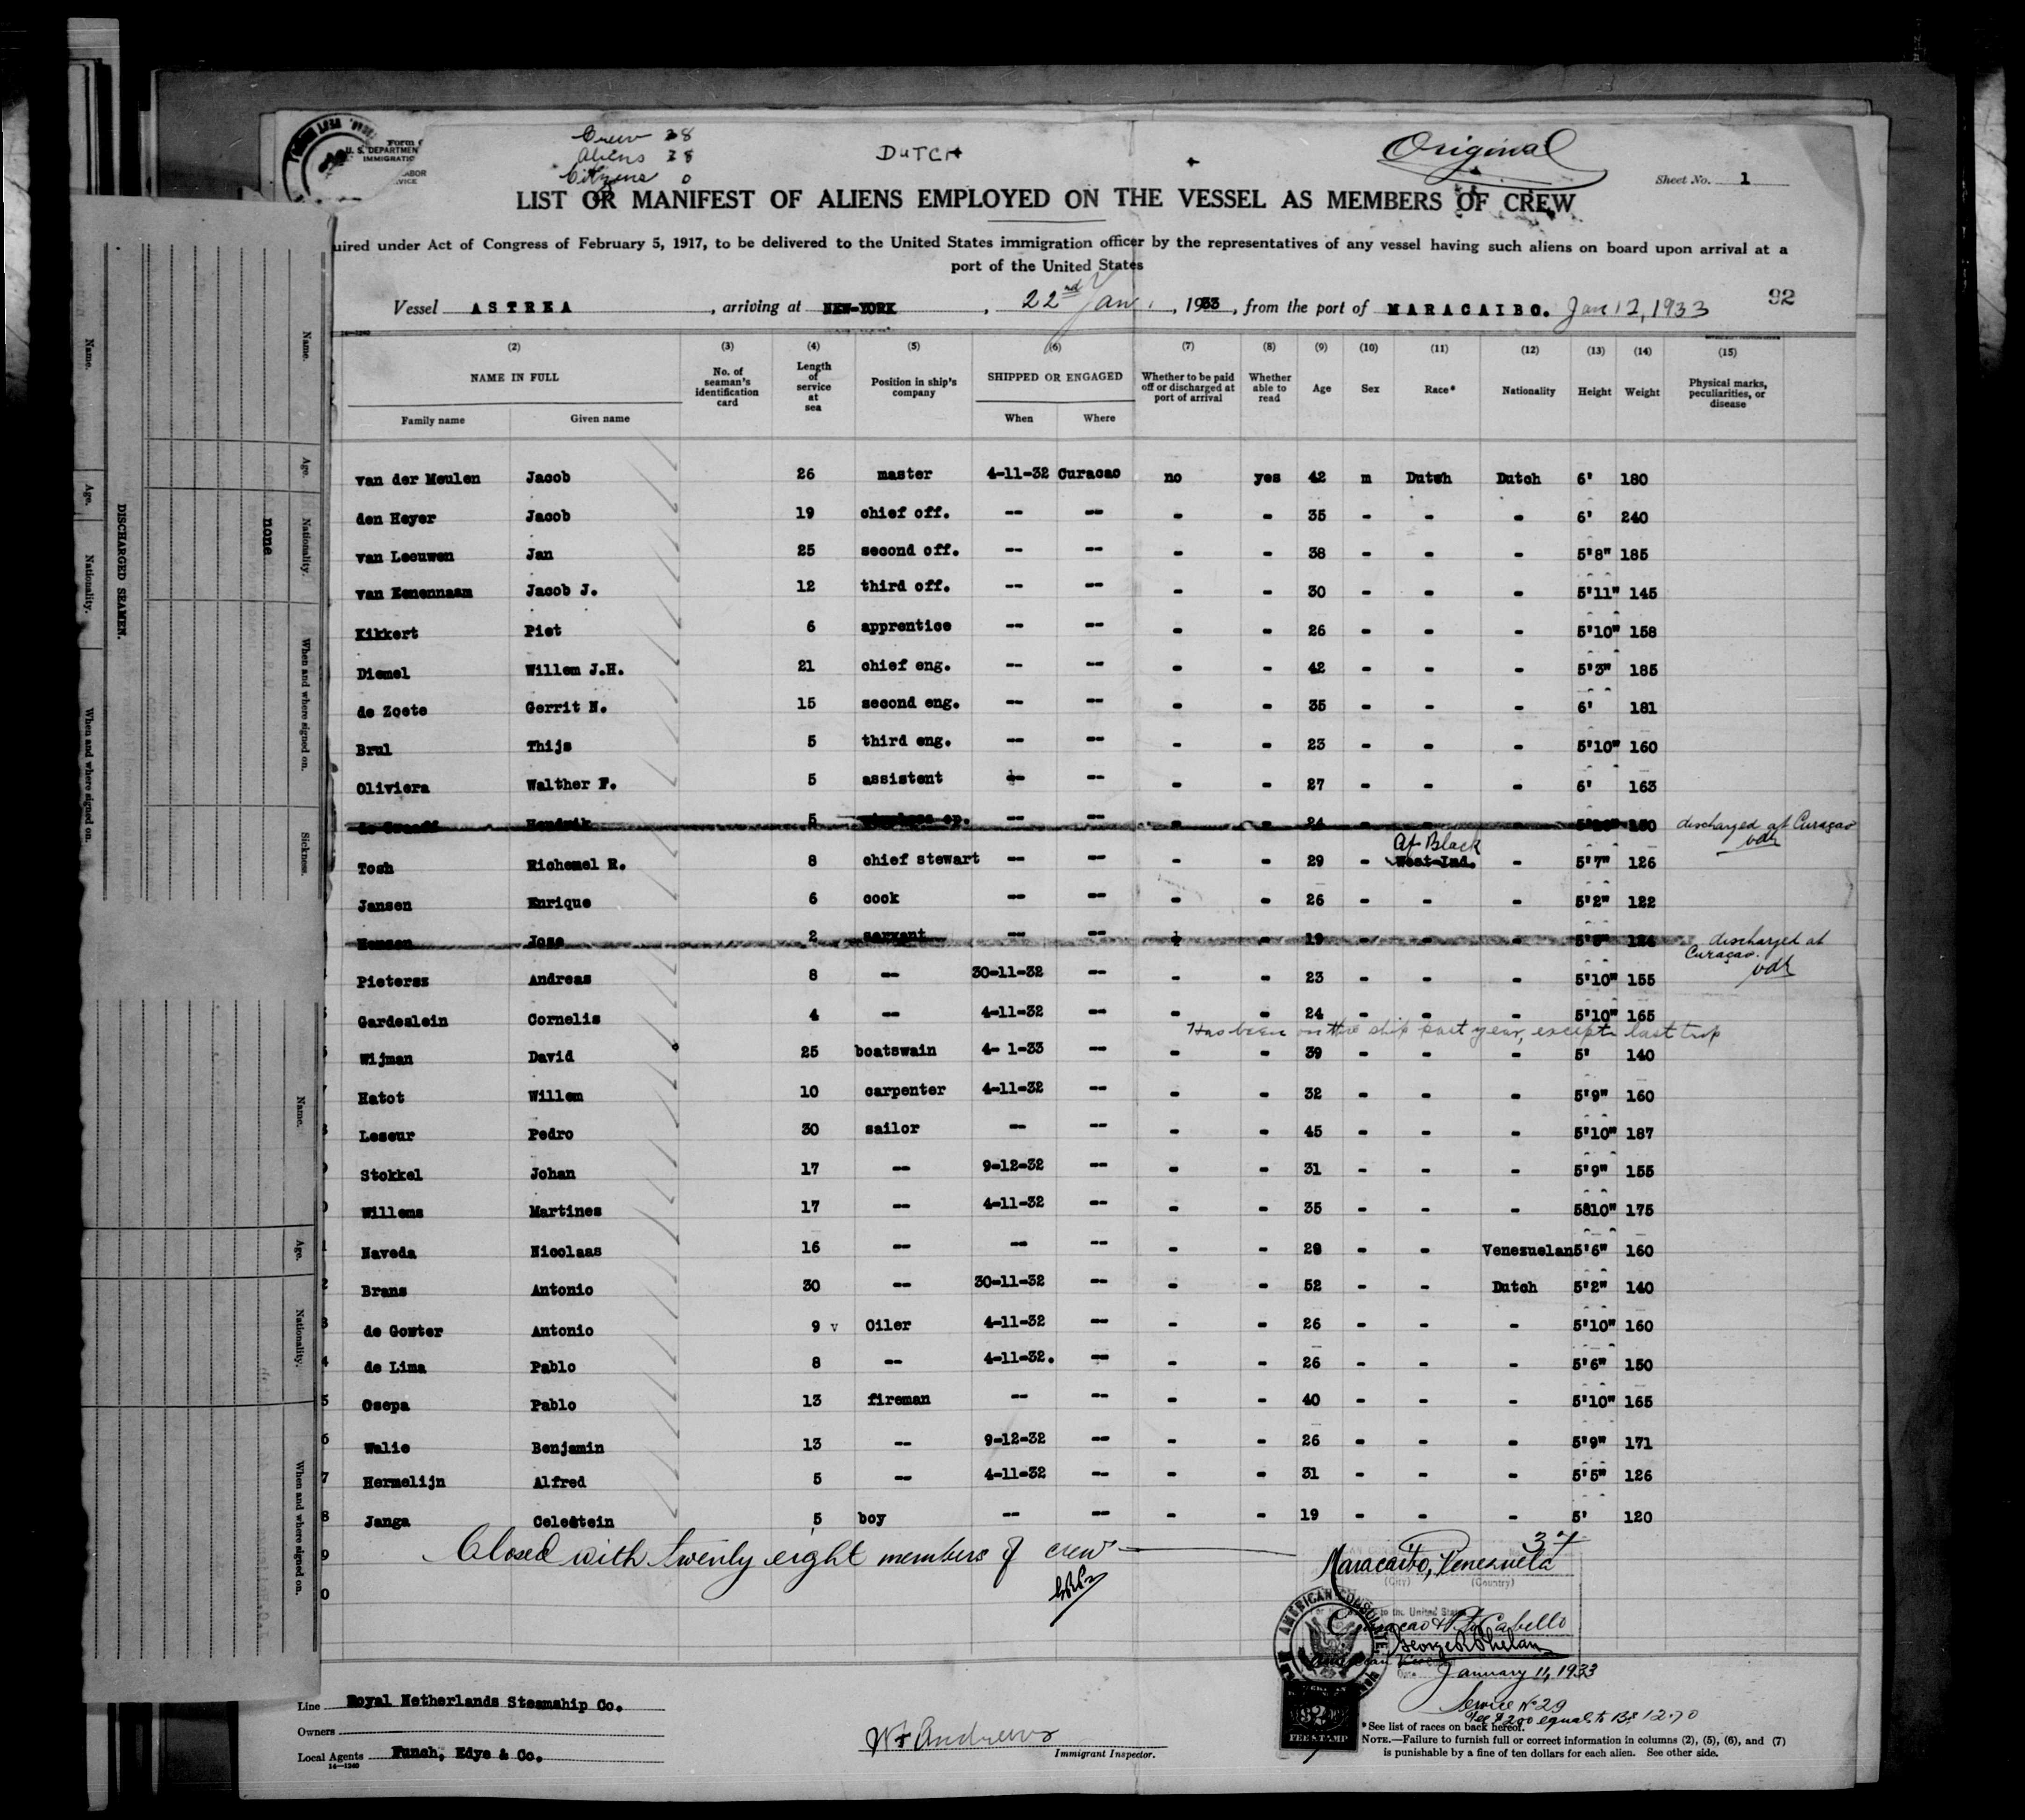 Crew 28
Aliens 28
Citizens 0
DUTCH
Original
Sheet No. 1
U. S. DEPARTMEN
IMMIGRATIO
LIST OR MANIFEST OF ALIENS EMPLOYED ON THE VESSEL AS MEMBERS OF CREW
uired under Act of Congress of February 5, 1917, to be delivered to the United States immigration officer by the representatives of any vessel having such aliens on board upon arrival at a
port of the United States
Vessel ASTREA, arriving at NEW-YORK, 22nd Jan., 1933, from the port of MARACAIBO. Jan 12, 1933
92
(2) (3) (4) (5) (6) (7) (8) (9) (10) (11) (12) (13) (14) (15)
NAME IN FULL No. of seaman's identification card Length of service at sea Position in ship's company SHIPPED OR ENGAGED Whether to be paid off or discharged at port of arrival Whether able to read Age Sex Race* Nationality Height Weight Physical marks, peculiarities, or disease
Family name Given name When Where
van der Meulen Jacob 26 master 4-11-32 Curacao no yes 42 m Dutch Dutch 6' 180
den Heyer Jacob 19 chief off. -- -- - - 35 - - - 6' 240
van Leeuwen Jan 25 second off. -- -- - - 38 - - - 5'8" 185
van Kenennaam Jacob J. 12 third off. -- -- - - 30 - - - 5'11" 145
Kikkert Piet 6 apprentice -- -- - - 26 - - - 5'10" 158
Diemel Willem J.H. 21 chief eng. -- -- - - 42 - - - 5'3" 185
de Zoete Gerrit N. 15 second eng. -- -- - - 35 - - - 6' 181
Brul Thijs 5 third eng. -- -- - - 23 - - - 5'10" 160
Oliviera Walther F. 5 assistent -- -- - - 27 - - - 6' 163
de Graaff Hendrik 5 wireless op. -- -- - - 24 - - - 150 discharged at Curaçao
Af Black
Tosh Richemel R. 8 chief stewart -- -- - - 29 - West-Ind. - 5'7" 126
Jansen Enrique 6 cook -- -- - - 26 - - - 5'2" 122
Jose 2 servant -- -- - 19 - - - 124 discharged at
Curaçao.
Pietersz Andreas 8 -- 30-11-32 -- - - 23 - - - 5'10" 155
Gardeslein Cornelis 4 -- 4-11-32 -- - - 24 - - - 5'10" 165
Has been on the ship past year, except last trip
Wijman David 25 boatswain 4- 1-33 -- - - 39 - - - 5' 140
Hatot Willem 10 carpenter 4-11-32 -- - - 32 - - - 5'9" 160
Leseur Pedro 30 sailor -- -- - - 45 - - - 5'10" 187
Stokkel Johan 17 -- 9-12-32 -- - - 31 - - - 5'9" 155
Willems Martines 17 -- 4-11-32 -- - - 35 - - - 5810" 175
Naveda Nicolaas 16 -- -- -- - - 29 - - Venezuelan 5'6" 160
Brans Antonio 30 -- 30-11-32 -- - - 52 - - Dutch 5'2" 140
de Gowter Antonio 9 v Oiler 4-11-32 -- - - 26 - - - 5'10" 160
de Lima Pablo 8 -- 4-11-32. -- - - 26 - - - 5'6" 150
Osepa Pablo 13 fireman -- -- - - 40 - - - 5'10" 165
Walie Benjamin 13 -- 9-12-32 -- - - 26 - - - 5'9" 171
Hermelijn Alfred 5 -- 4-11-32 -- - - 31 - - - 5'5" 126
Janga Celestein 5 boy -- -- - - 19 - - - 5' 120
Closed with twenty eight members of crew
37
Maracaibo, Venezuela
(City) (Country)
to the United States
Curacao & Pto Cabello
George R Phelan
January 11, 1933
Service No 29
Fee $2.00 equal to Bs 12.70
AMERICAN CONSULATE
FEE STAMP
Line Royal Netherlands Steamship Co.
Owners
Local Agents Funch, Edye & Co.
14—1240
Wt Andrews
Immigrant Inspector.
*See list of races on back hereof.
NOTE.—Failure to furnish full or correct information in columns (2), (5), (6), and (7)
is punishable by a fine of ten dollars for each alien. See other side.
DISCHARGED SEAMEN.
Name. Age. Nationality. When and where signed on.
Name. Age. Nationality. When and where signed on. Sickness.
none
Name. Age. Nationality. When and where signed on.